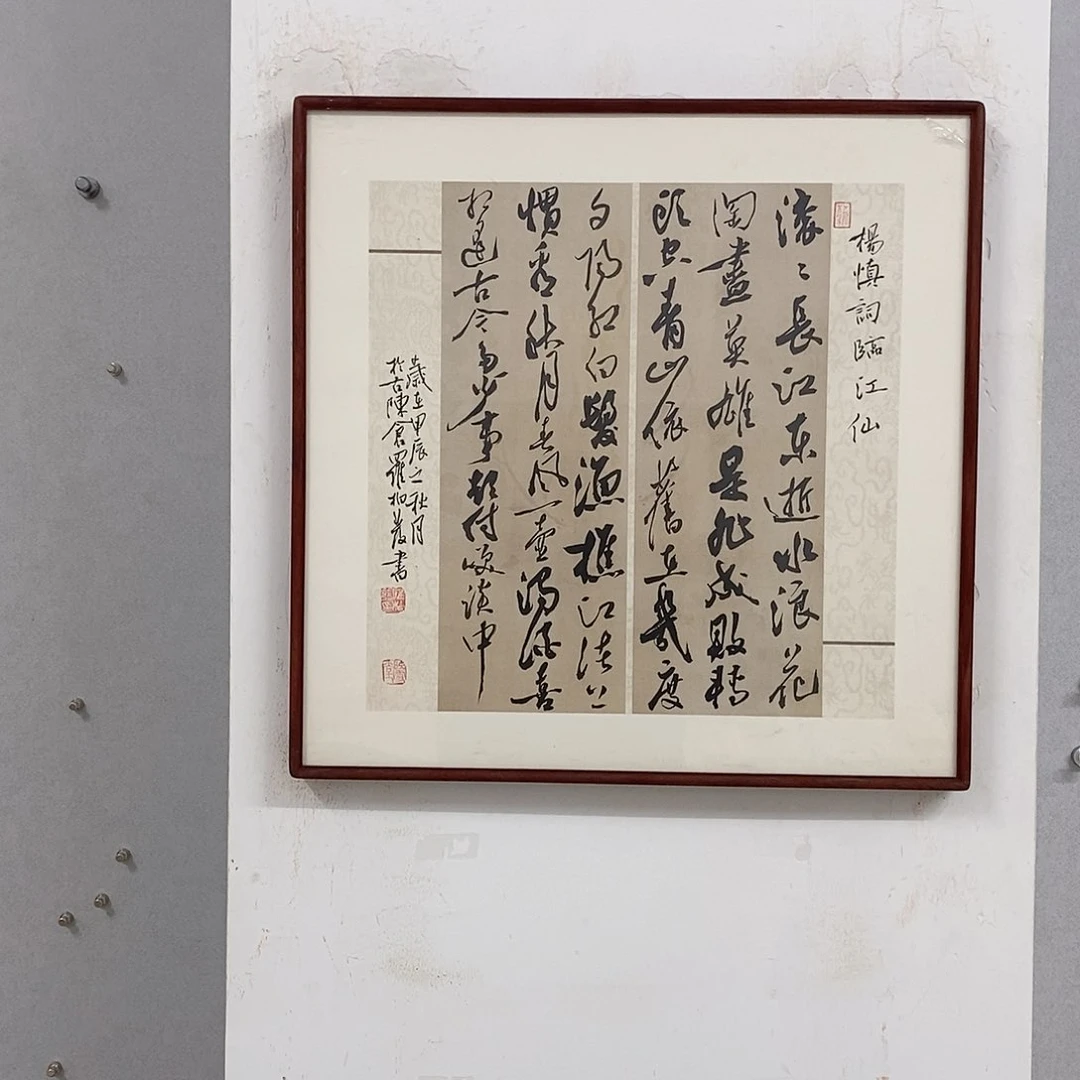 楊慎詞臨江仙
滚〻長江東逝水浪花
淘盡英雄是非成敗轉
頭空青山依舊在幾度
夕陽紅白髮漁樵江渚上
慣看秋月春風一壺濁酒喜
相逢古今多少事都付笑談中
歲在甲辰之秋月
於古陳倉羅書